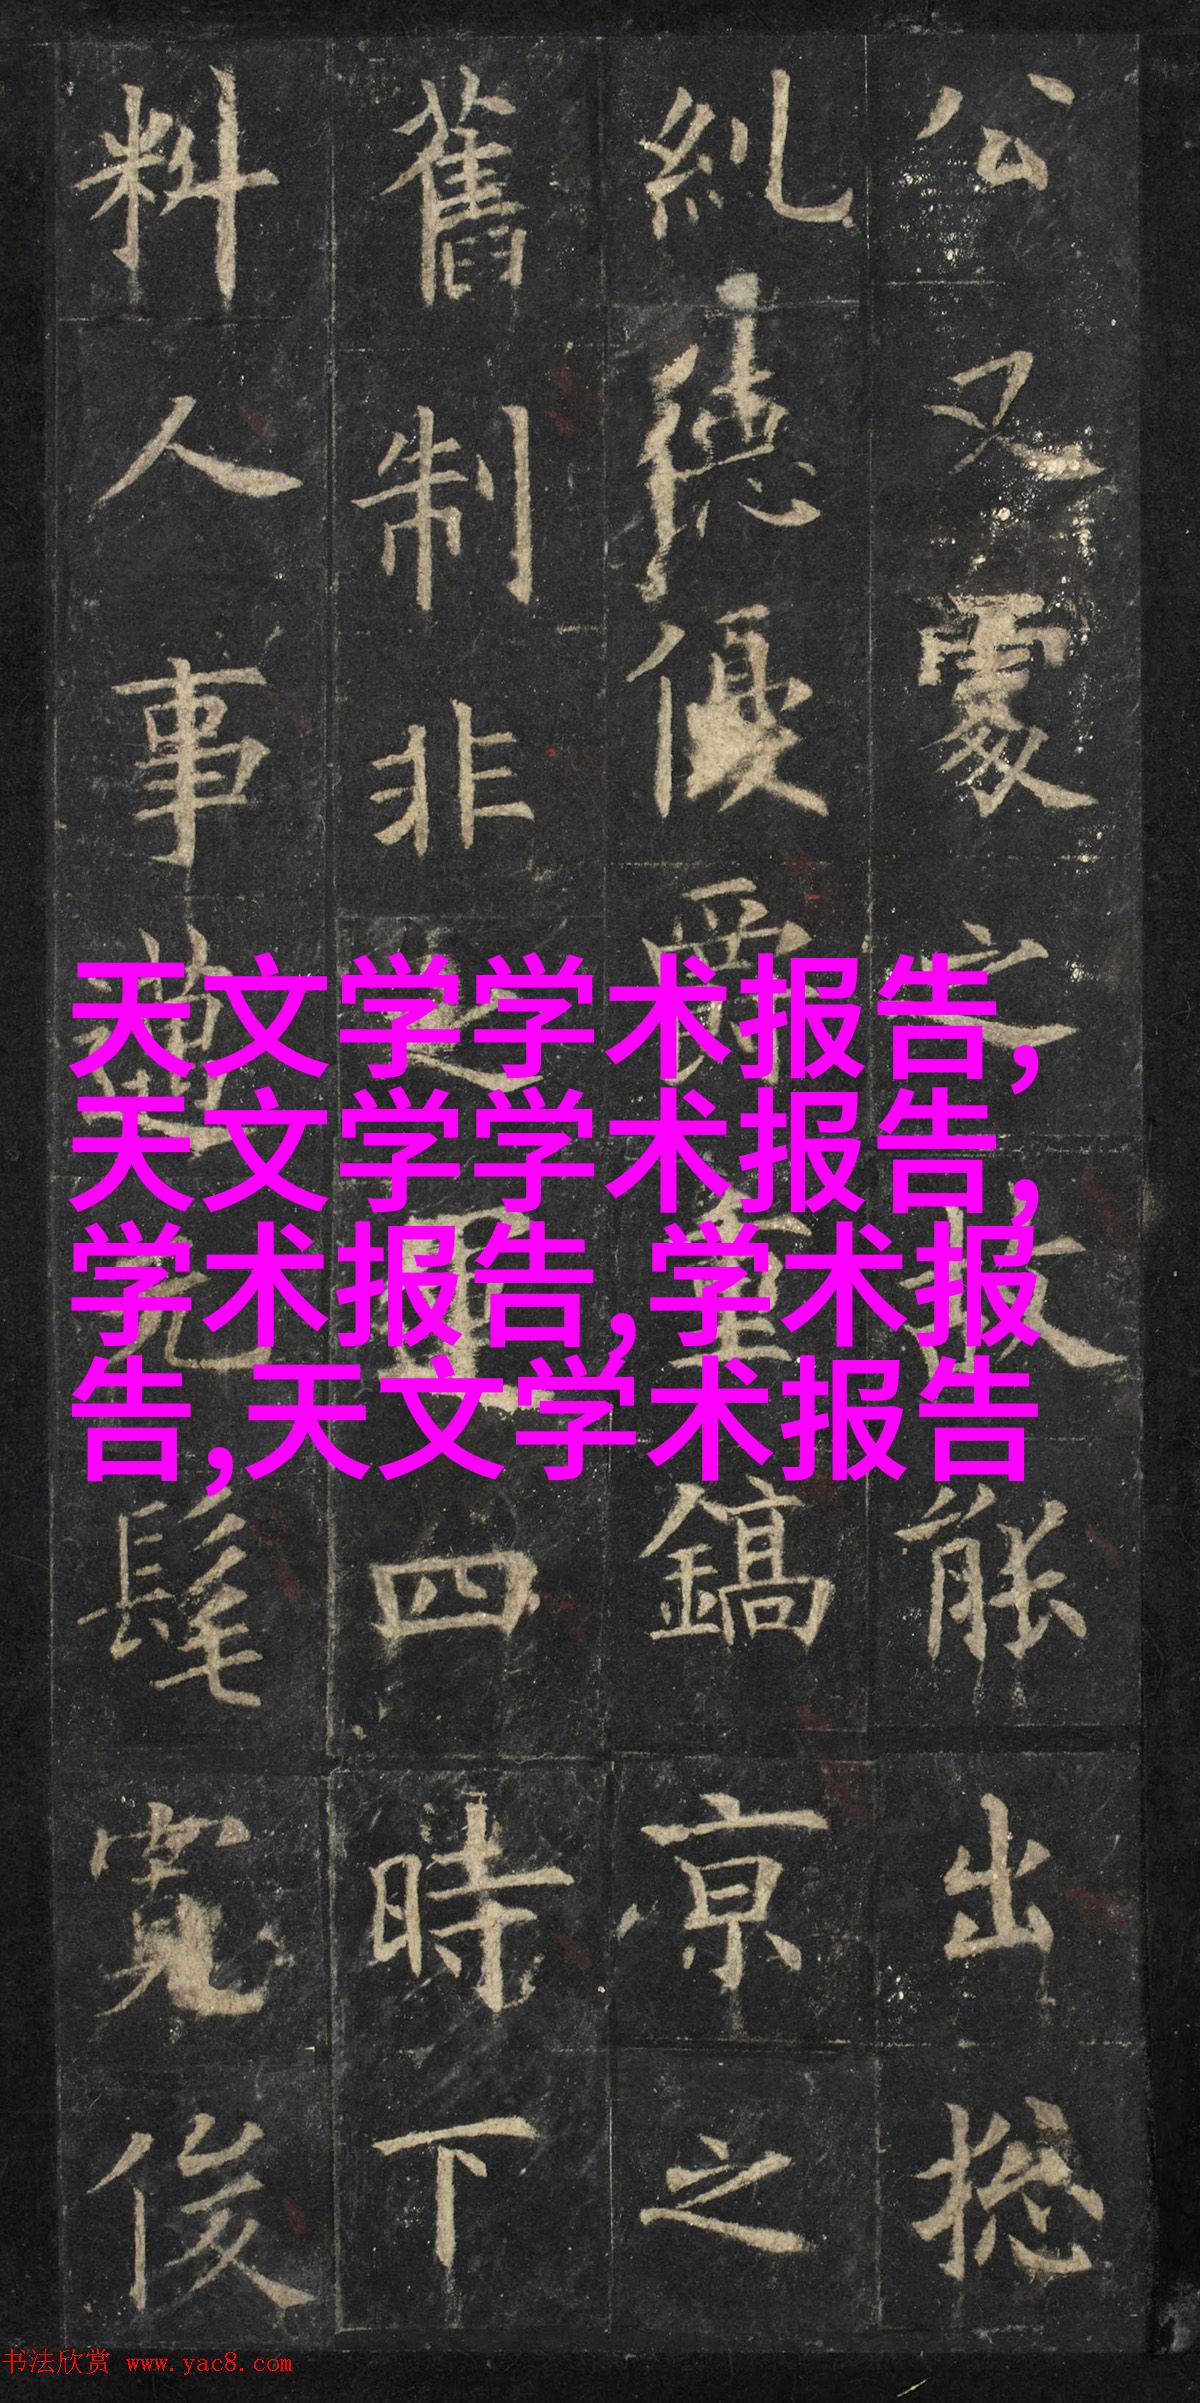 公又處之故能出揔
糺德優爵重鎬京之
舊制非之置四時下
料人事
髦寛俊
天文学学术报告,
天文学学术报告,
学术报告,学术报
告,天文学术报告
书法欣赏 www.yac8.com